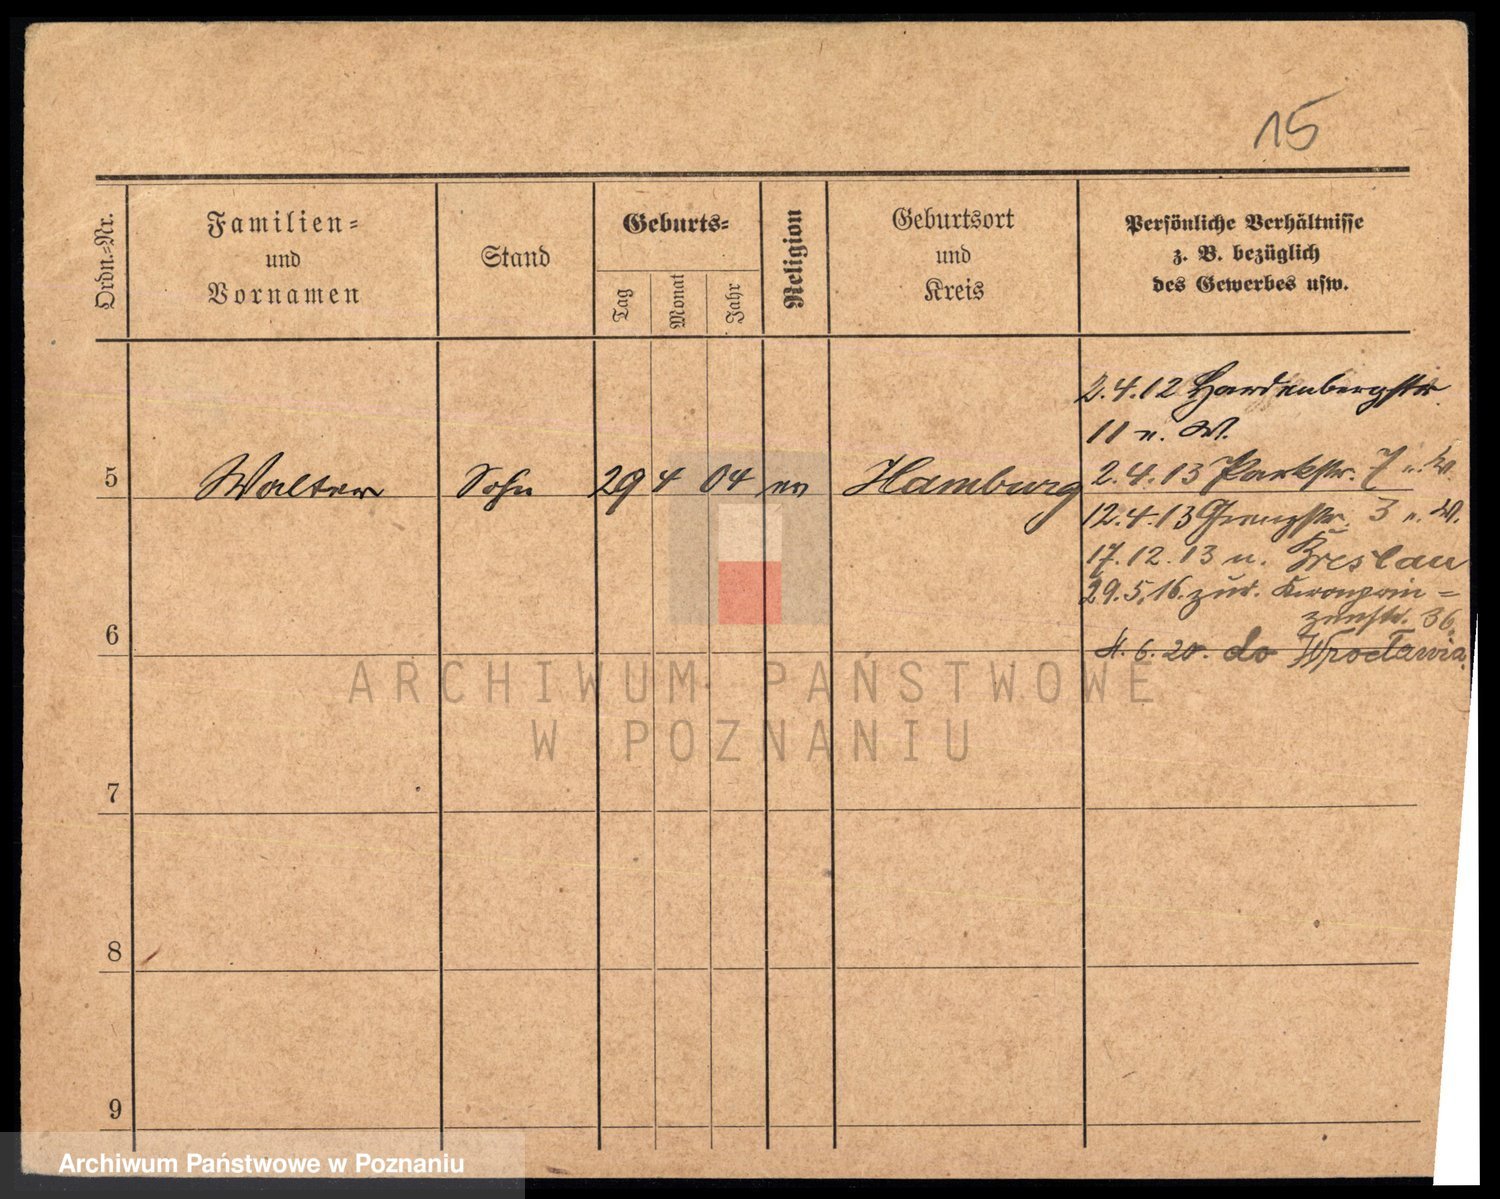 15
Ordn.-Nr.
Familien-
und
Vornamen
Stand
Geburts-
Tag
Monat
Jahr
Religion
Geburtsort
und
Kreis
Persönliche Verhältnisse
z. B. bezüglich
des Gewerbes usw.
2.4.12 Hardenbergstr.
11 n. W.
5 Walter Sohn 29 4 04 ev Hamburg 2.4.13 Parkstr. 7 n. W.
12.4.13 Grenzstr. 3 n. W.
17.12.13 n. Breslau
29.5.16. zur. Kronprin=
zenstr. 36.
6 4. 6. 20. do Wrocławia.
ARCHIWUM PAŃSTWOWE
W POZNANIU
7
8
9
Archiwum Państwowe w Poznaniu